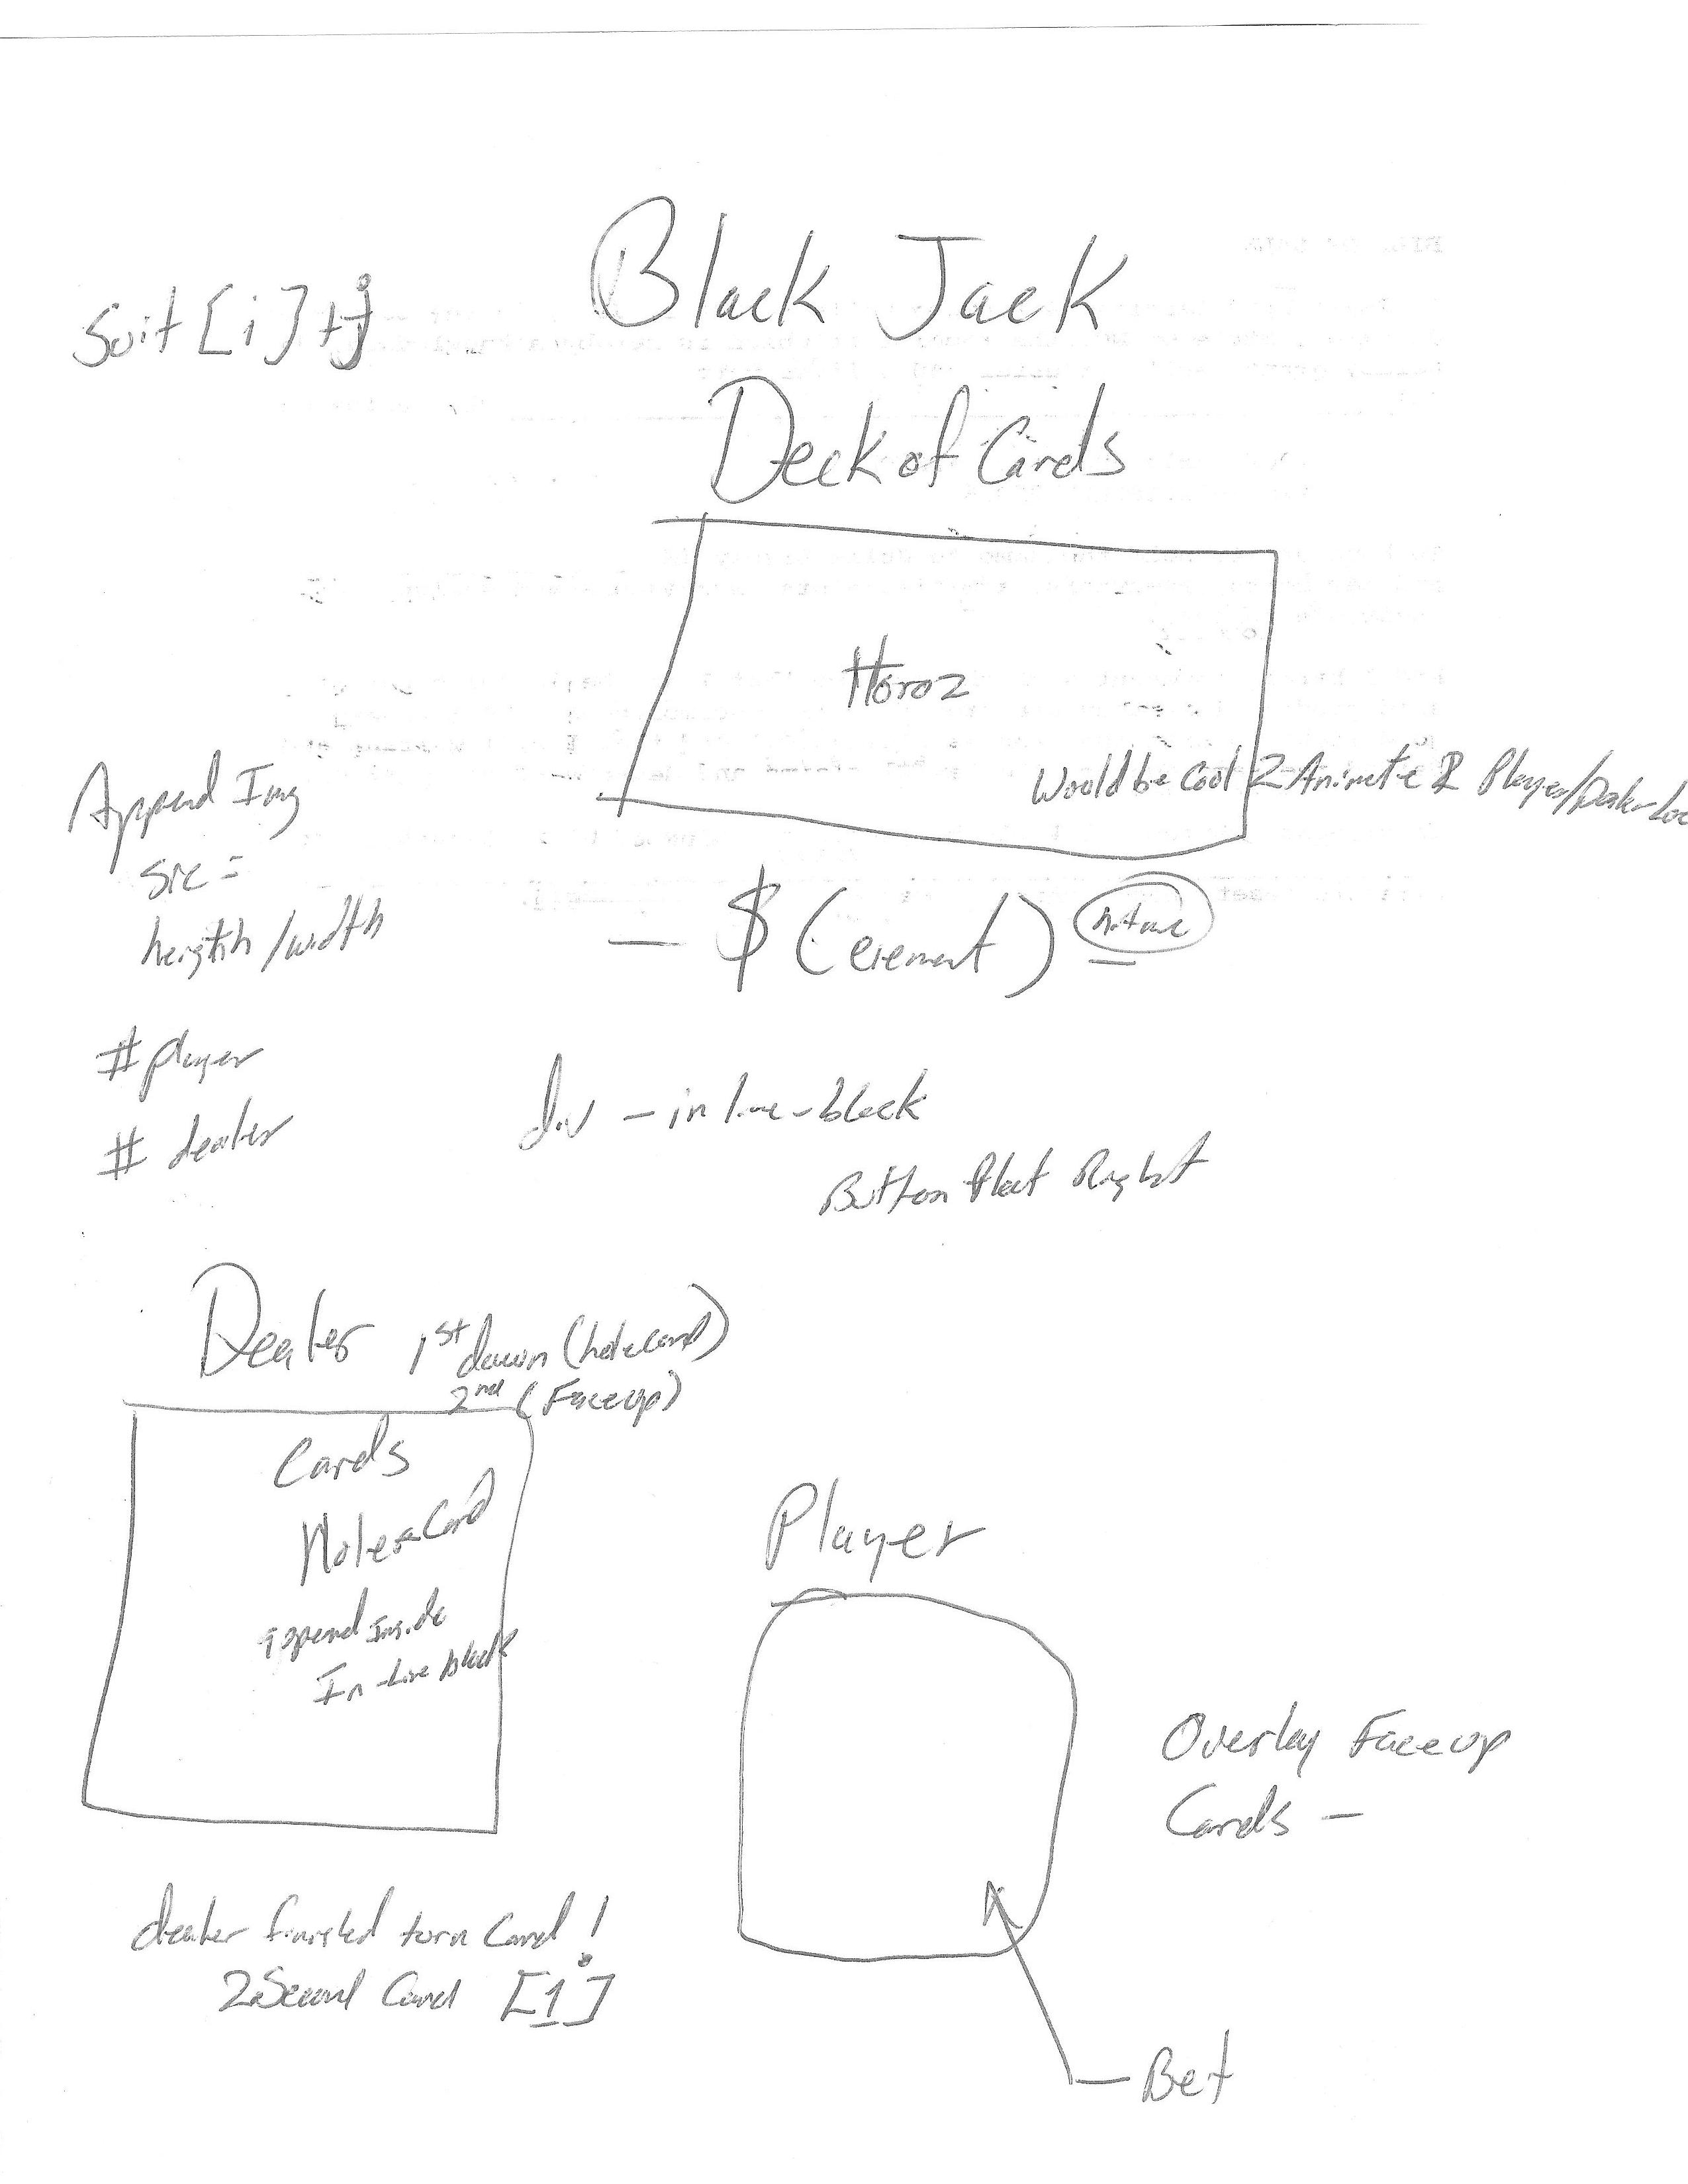 Black Jack
Suit[i]+j
Deck of Cards
Horoz
Would be cool 2 Animate 2 Player/Dealer Loc
Append Img
src =
heigth/width
- $(element)
#player
# dealer
div - inline-block
Button Float Right
Dealer 1st down (hole card)
2nd (Face up)
Cards
Hole Card
append Inside
In-line block
Player
Overlay Face up
Cards -
dealer finished turn Card!
2 Second Card [1]
Bet